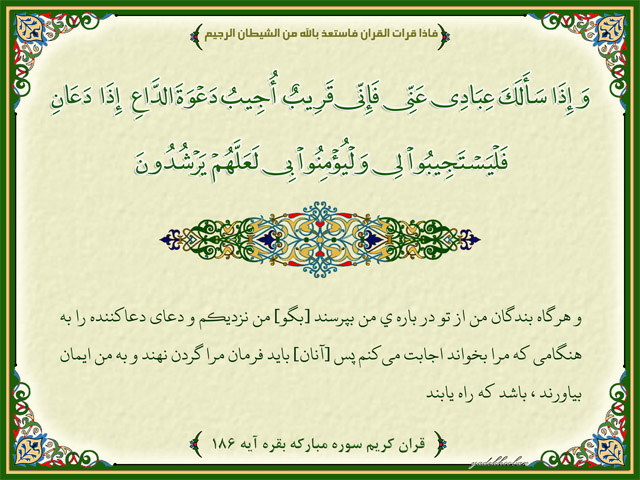 فاذا قرات القران فاستعذ بالله من الشيطان الرجيم
وَ إِذَا سَأَلَكَ عِبَادِی عَنِّی فَإِنِّی قَرِیبٌ أُجِیبُ دَعْوَةَ الدَّاعِ إِذَا دَعَانِ
فَلْیَسْتَجِیبُواْ لِی وَلْیُؤْمِنُواْ بِی لَعَلَّهُمْ یَرْشُدُونَ
و هرگاه بندگان من از تو در باره ي من بپرسند [بگو] من نزدیکم و دعای دعاکننده را به
هنگامی که مرا بخواند اجابت می‌کنم پس [آنان] باید فرمان مرا گردن نهند و به من ایمان
بیاورند ، باشد که راه یابند
قران کریم سوره مبارکه بقره آیه ۱۸۶